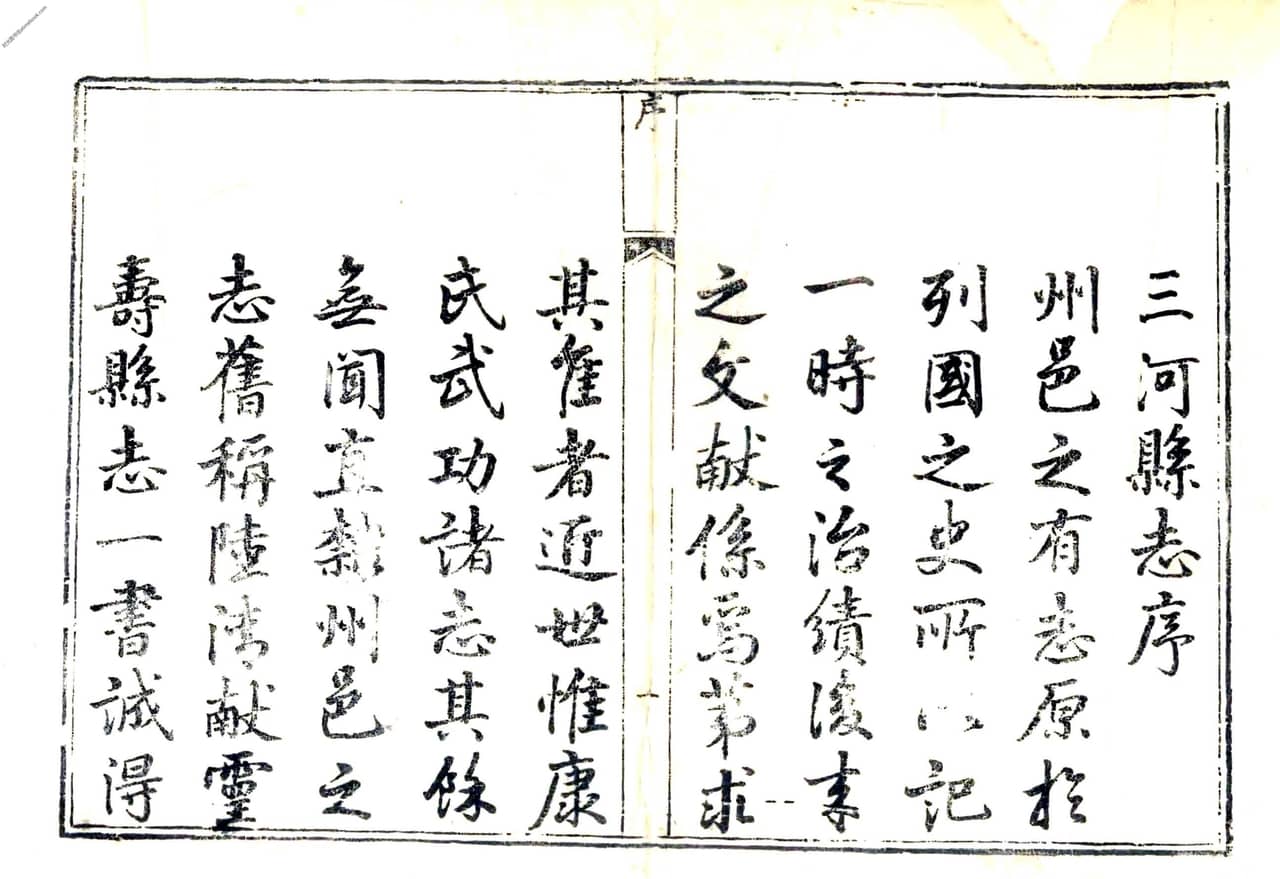 三河縣志序
州邑之有志原於
列國之史所以記
一時之治績後来
之文献係焉第求
序
一
其佳者近世惟康
氏武功諸志其餘
無聞直隸州邑之
志舊稱陸清献靈
壽縣志一書誠得